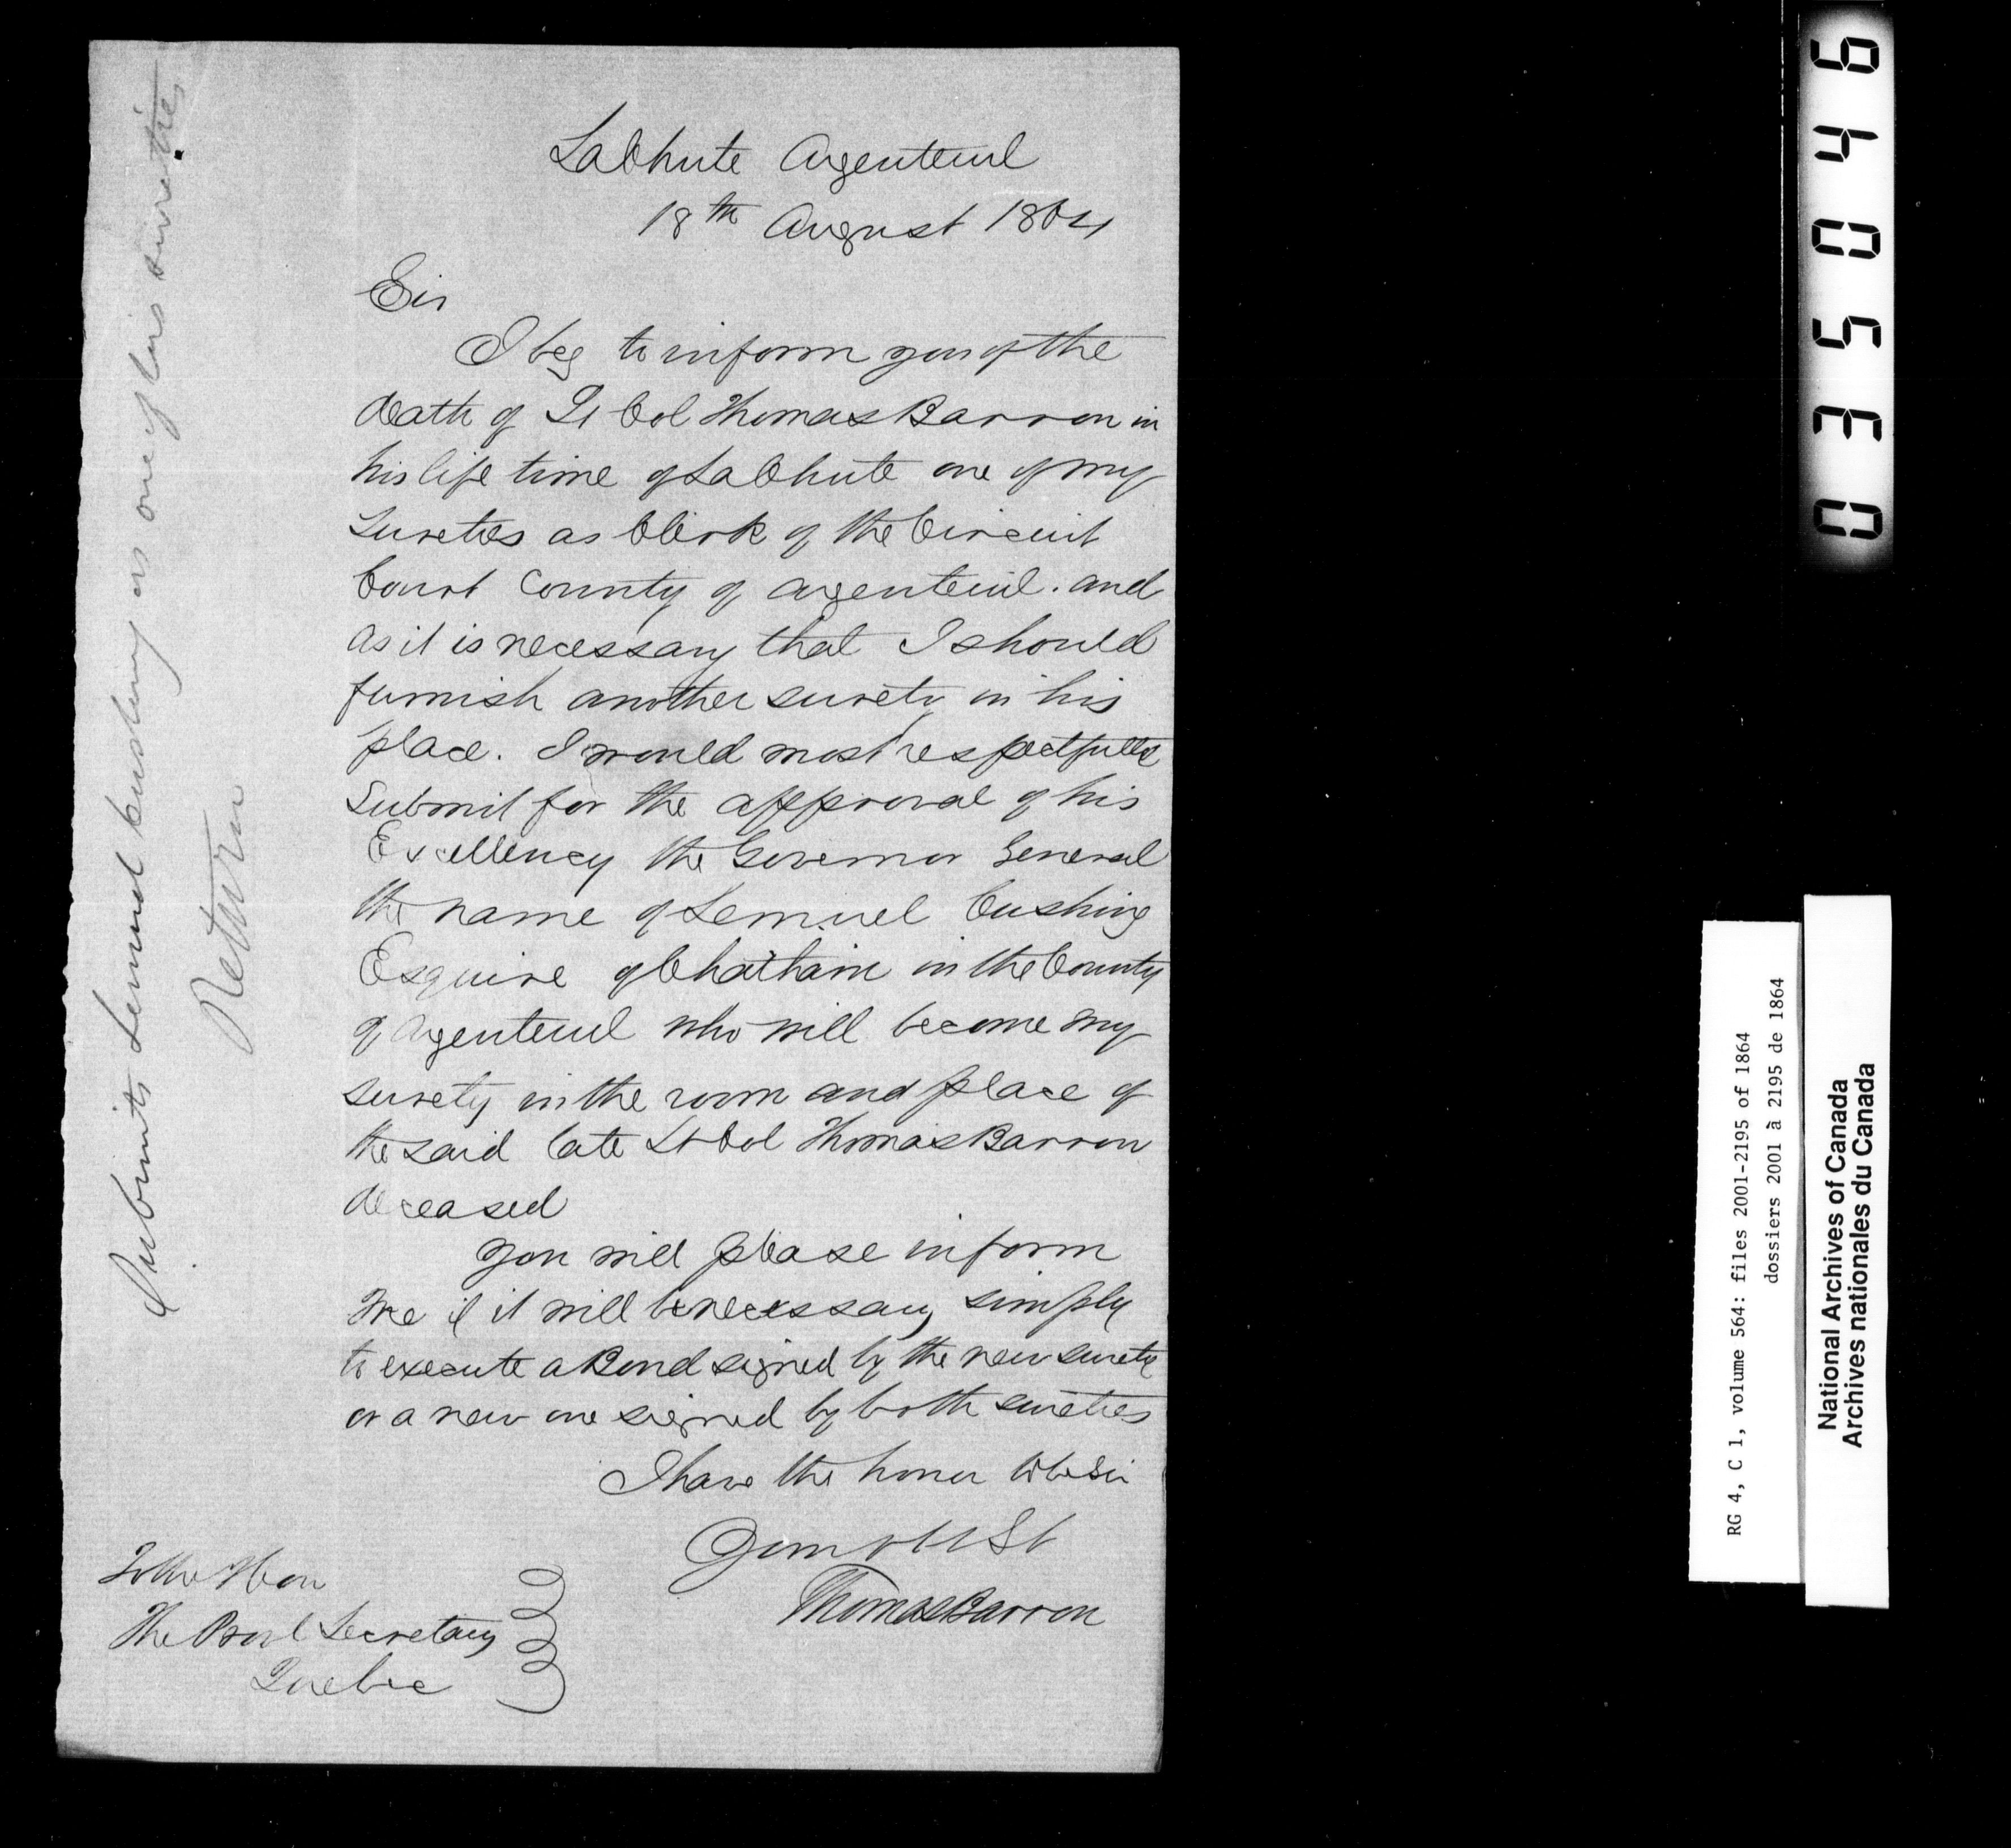 LaChute Argenteuil
18th August 1864
Sir
I beg to inform you of the
death of Lt Col Thomas Barron in
his life time of LaChute one of my
Sureties as Clerk of the Circuit
Court County of Argenteuil. and
as it is necessary that I should
furnish another surety in his
place. I would most respectfully
Submit for the approval of his
Excellency the Governor General
the name of Lemuel Cushing
Esquire of Chatham in the County
of Argenteuil who will become my
surety in the room and place of
the said late Lt Col Thomas Barron
deceased
You will please inform
me if it will be necessary simply
to execute a Bond signed by the new surety
or a new one signed by both sureties
I have the honor to be Sir
Your Ob St
Thomas Barron
To the Hon
The Provl Secretary
Quebec
Submits Lemuel Cushing as one of his sureties
Return
035046
RG 4, C 1, volume 564: files 2001-2195 of 1864
dossiers 2001 à 2195 de 1864
National Archives of Canada
Archives nationales du Canada